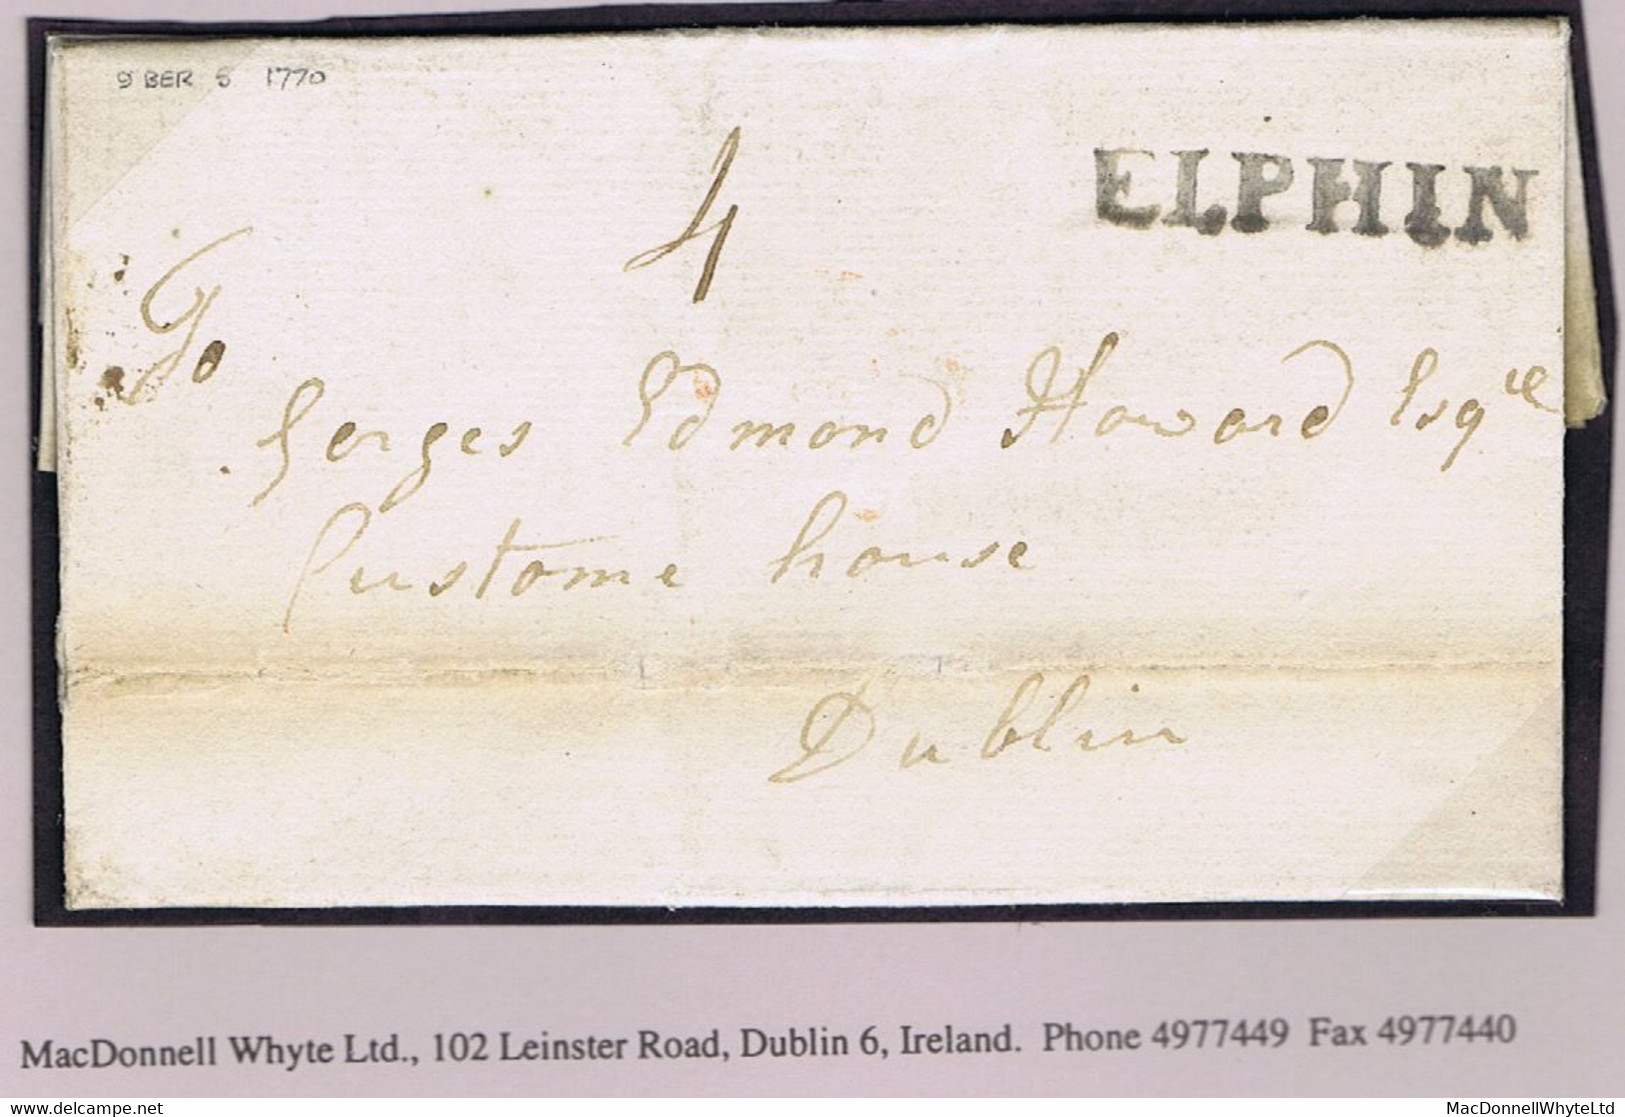 9 BER 5 1770
4
ELPHIN
To
Gorges Edmond Howard Esqre
Custome house
Dublin
MacDonnell Whyte Ltd., 102 Leinster Road, Dublin 6, Ireland. Phone 4977449 Fax 4977440
© www.delcampe.net
MacDonnellWhyteLtd